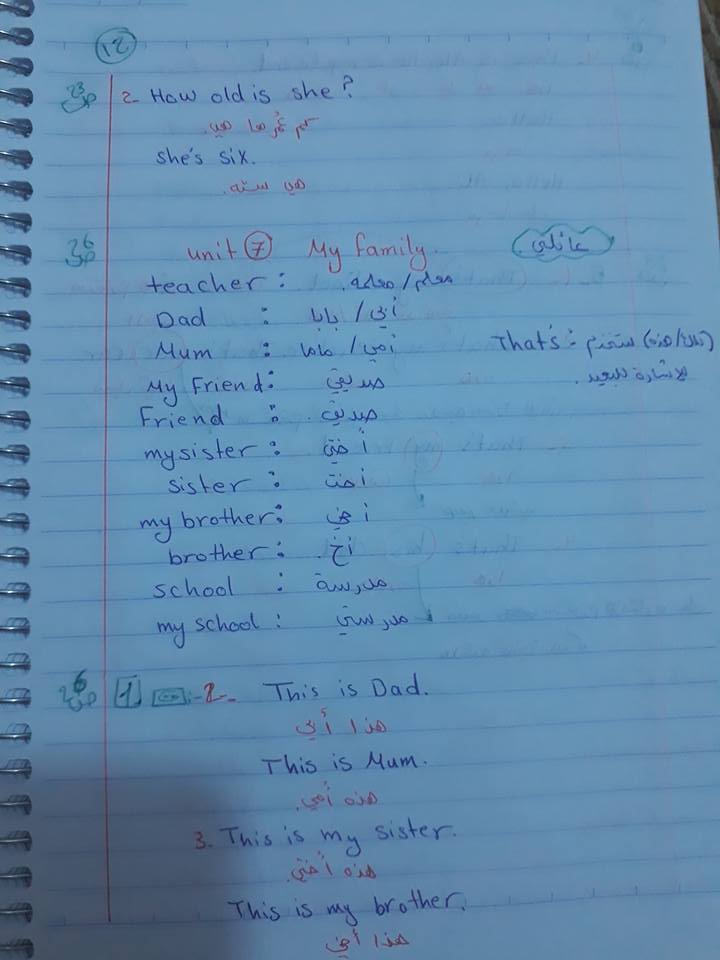 ١٢
ص٢٣ 2. How old is she?
كم عُمرها هي.
she's six.
هي سته.
ص٢٦ unit 7 My family. عائلتي
teacher : معلم/معلمة.
Dad : أبي/بابا
Mum : أمي/ماما That's : (تلك/هذه) تستخدم
My Friend : صديقي للاشارة للبعيد.
Friend : صديق.
my sister : أختي
sister : أخت
my brother : أخي
brother : أخ.
school : مدرسة
my school : مدرستي
ص٢٦ 1 :- 2- This is Dad.
هذا أبي
This is Mum.
هذه أمي.
3. This is my sister.
هذه أختي.
This is my brother.
هذا أخي